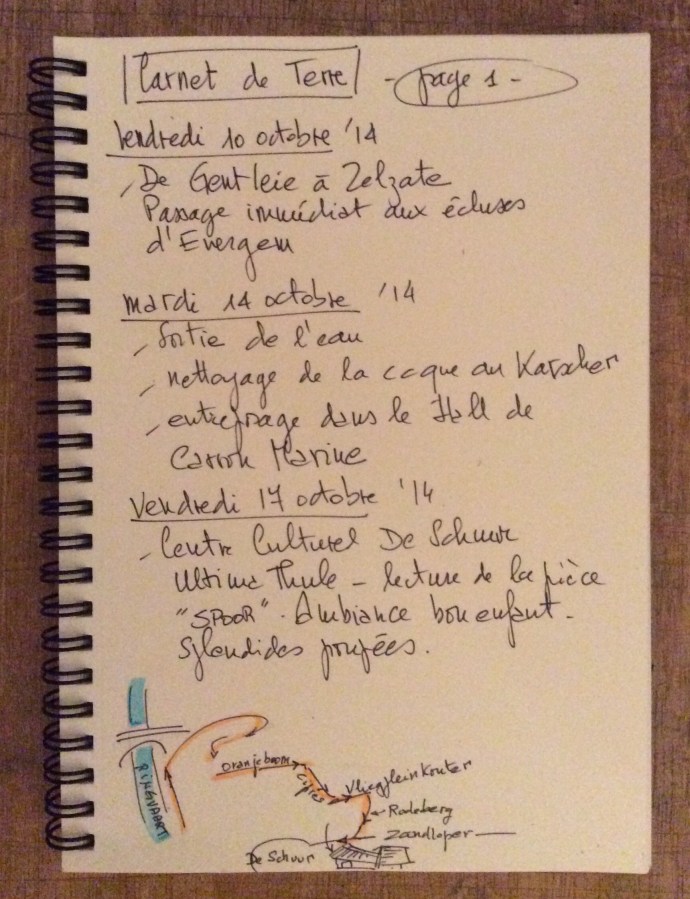 Carnet de Terre - page 1 -
Vendredi 10 octobre '14
De Gentleie à Zelzate
Passage immédiat aux écluses
d'Evergem
mardi 14 octobre '14
Sortie de l'eau
nettoyage de la coque au Karscher
entreposage dans le Hall de
Carron Marine
Vendredi 17 octobre '14
Centre Culturel De Schuur
Ultima Thule - lecture de la pièce
"SPOOR". Ambiance bon enfant.
Splendides poupées.
Oranjeboom
Vliegpleinkouter
RINGVAART
Rodeberg
Zandloper
De Schuur